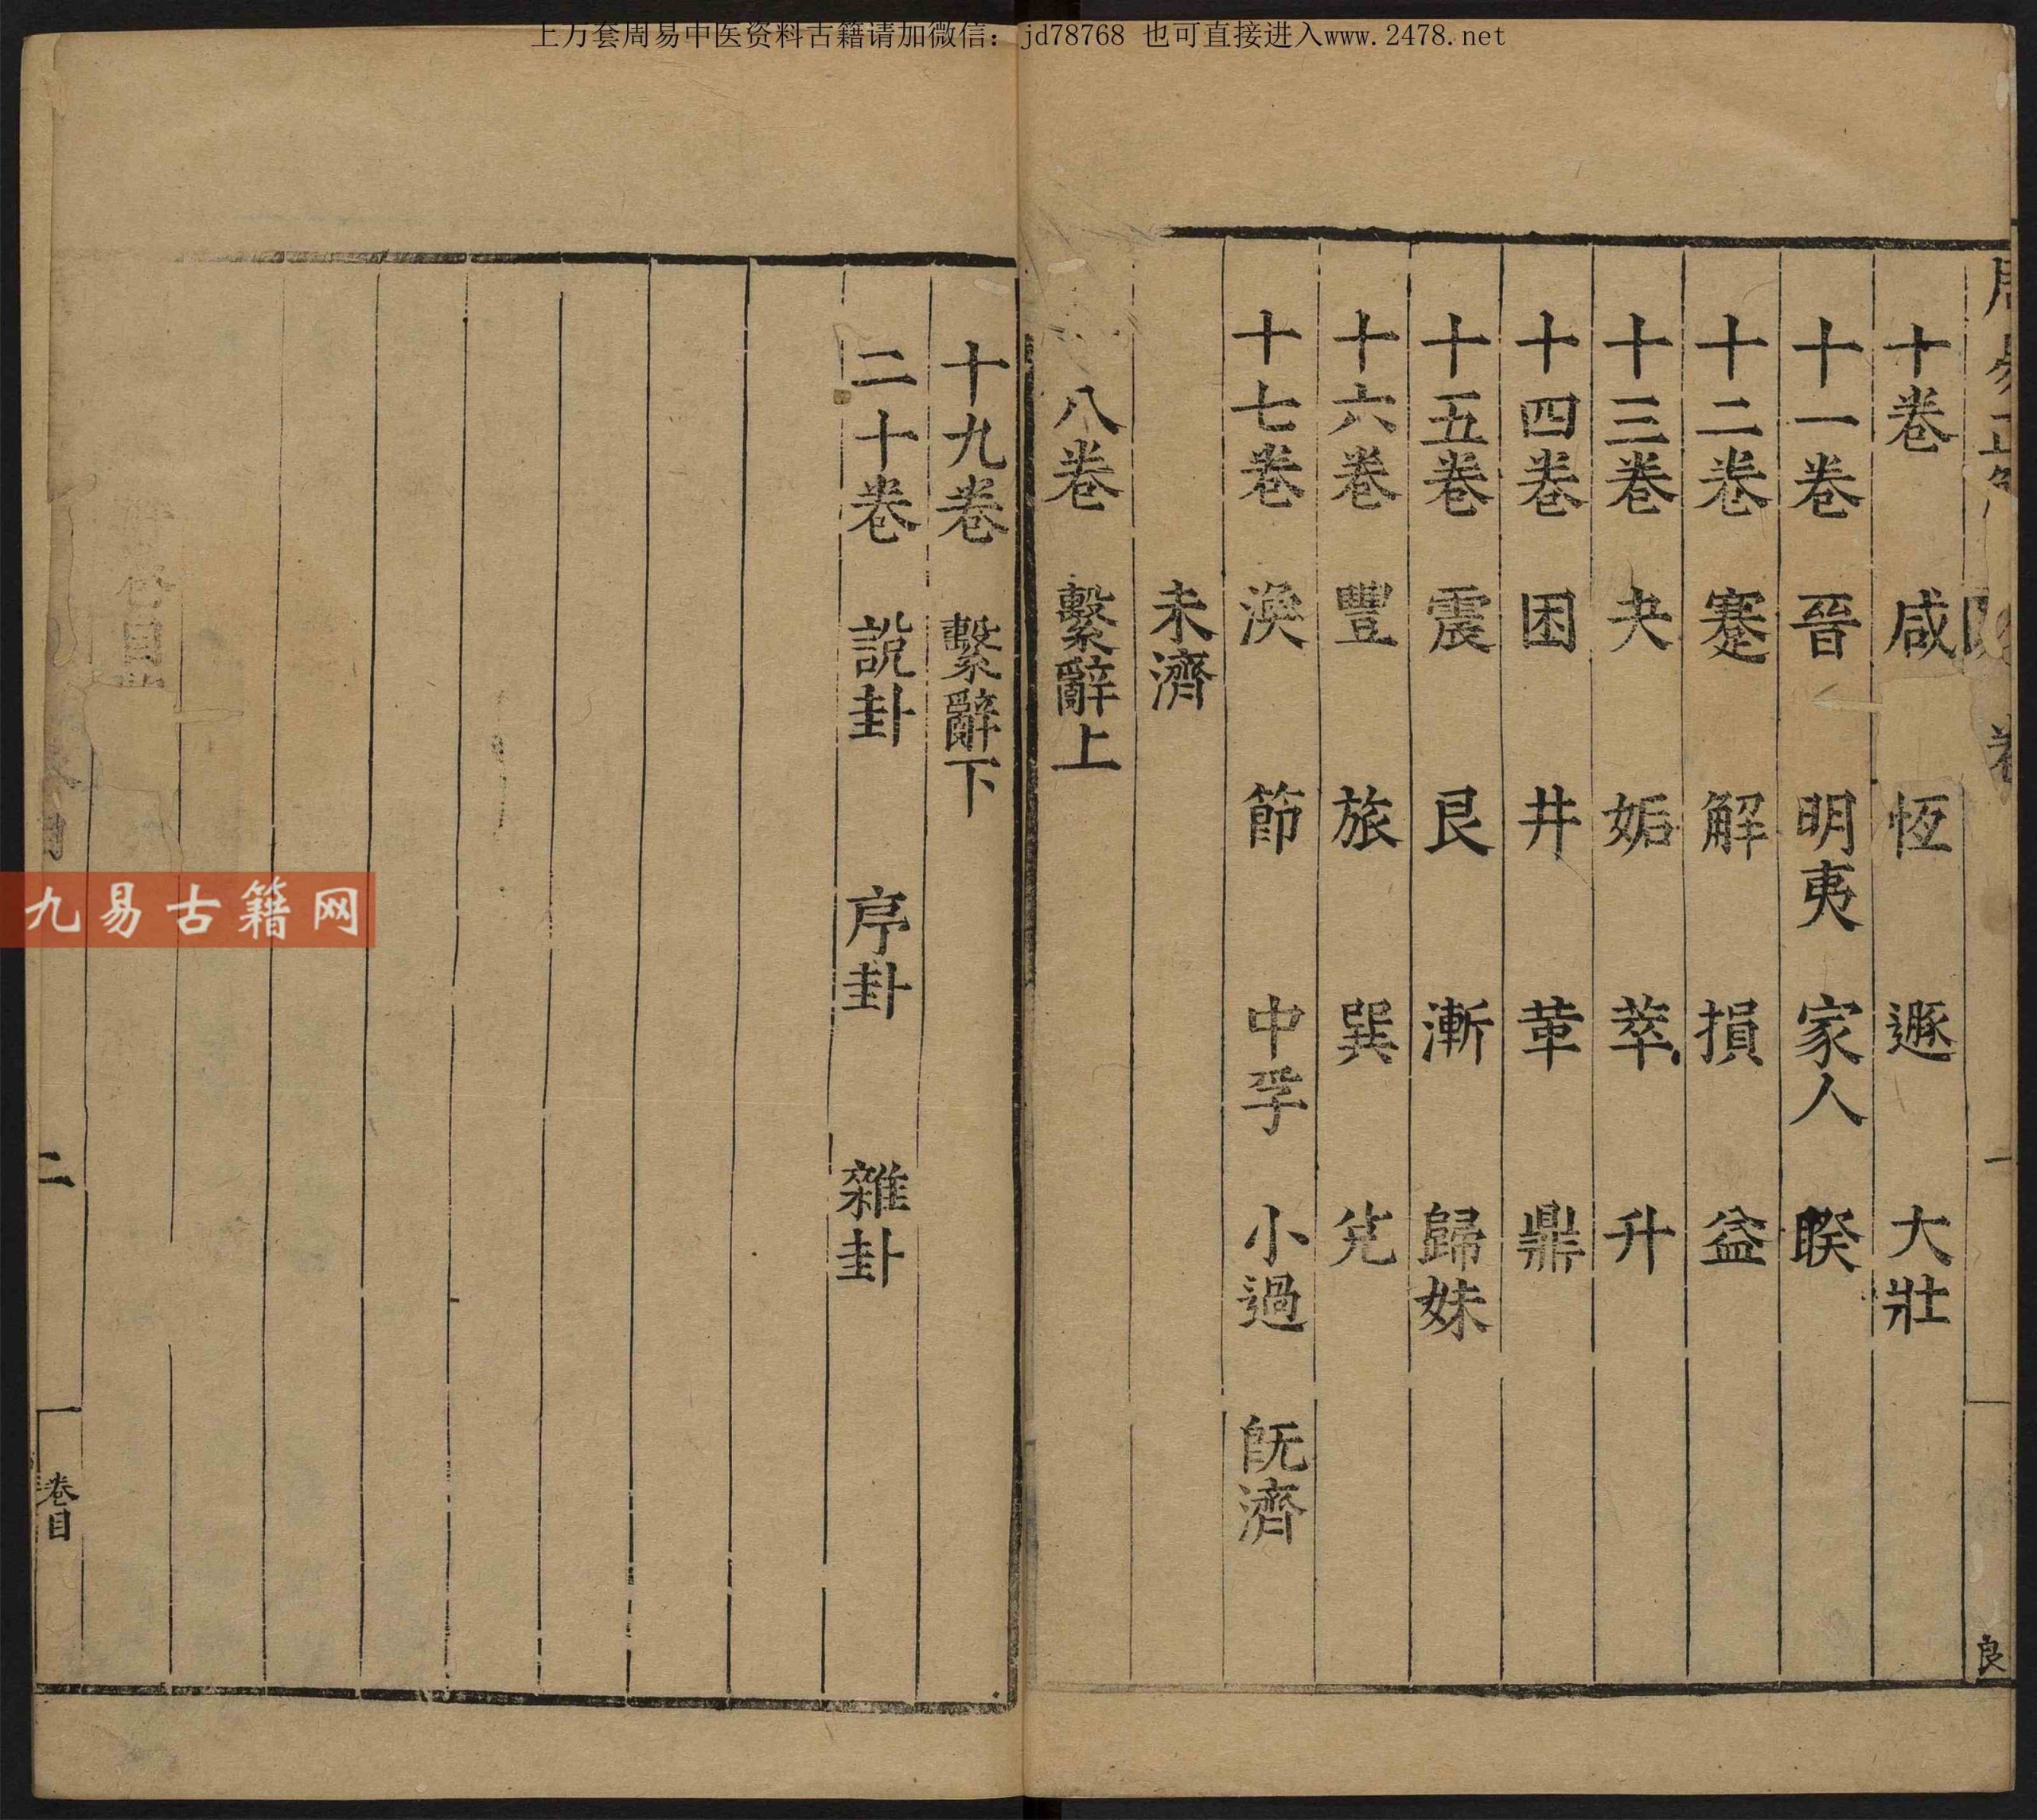 上万套周易中医资料古籍请加微信：jd78768 也可直接进入www.2478.net
十卷 咸 恆 遯 大壯
十一卷 晉 明夷 家人 睽
十二卷 蹇 解 損 益
十三卷 夬 姤 萃 升
十四卷 困 井 革 鼎
十五卷 震 艮 漸 歸妹
十六卷 豐 旅 巽 兌
十七卷 渙 節 中孚 小過 旣濟
未濟
八卷 繫辭上
良
十九卷 繫辭下
二十卷 說卦 序卦 雜卦
二
卷目
九易古籍网